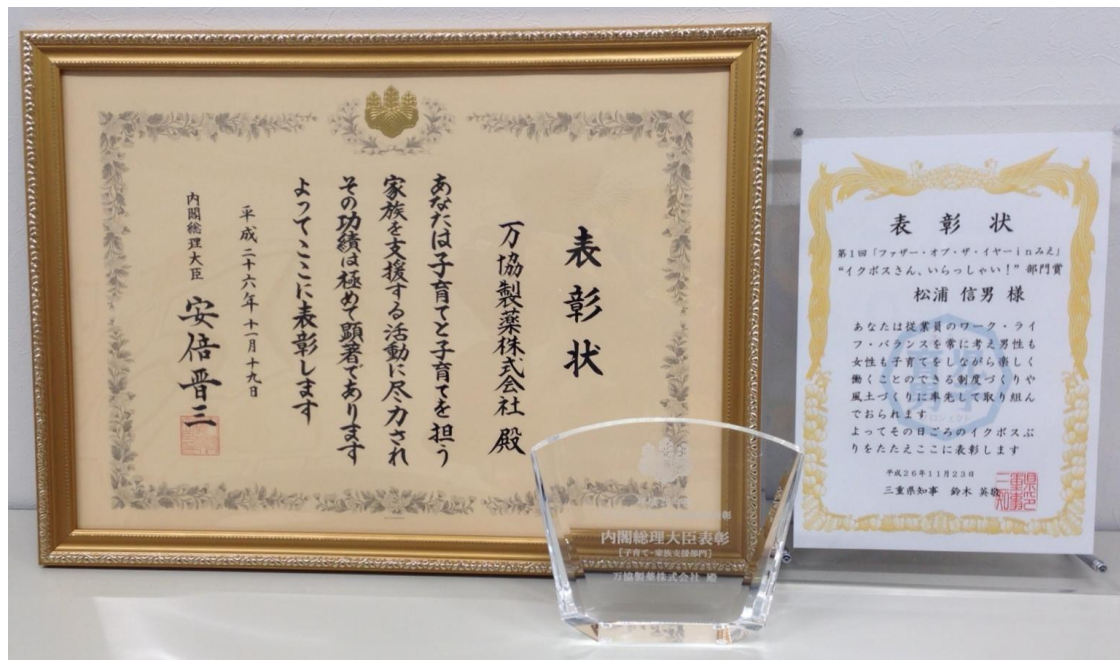 表彰状
万協製薬株式会社 殿
あなたは子育てと子育てを担う
家族を支援する活動に尽力され
その功績は極めて顕著であります
よってここに表彰します
平成二十六年十一月十九日
内閣総理大臣 安倍晋三
内閣総理大臣表彰
[子育て・家族支援部門]
万協製薬株式会社 殿
表彰状
第1回「ファザー・オブ・ザ・イヤーinみえ」
“イクボスさん、いらっしゃい!”部門賞
松浦 信男 様
あなたは従業員のワーク・ライ
フ・バランスを常に考え男性も
女性も子育てをしながら楽しく
働くことのできる制度づくりや
風土づくりに率先して取り組ん
でおられます
よってその日ごろのイクボスぶ
りをたたえここに表彰します
平成26年11月23日
三重県知事 鈴木 英敬